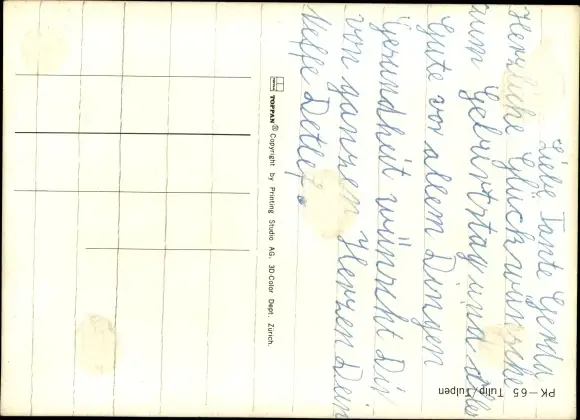 Liebe Tante Gerda
Herzliche Glückwünsche
zum Geburtstag und alles
Gute vor allem Dingen
Gesundheit wünscht Dir
von ganzen Herzen Dein
Neffe Detlef.
TOPPAN ® Copyright by Printing Studio AG, 3D-Color Dept. Zürich.
PK—65 Tulip/Tulpen